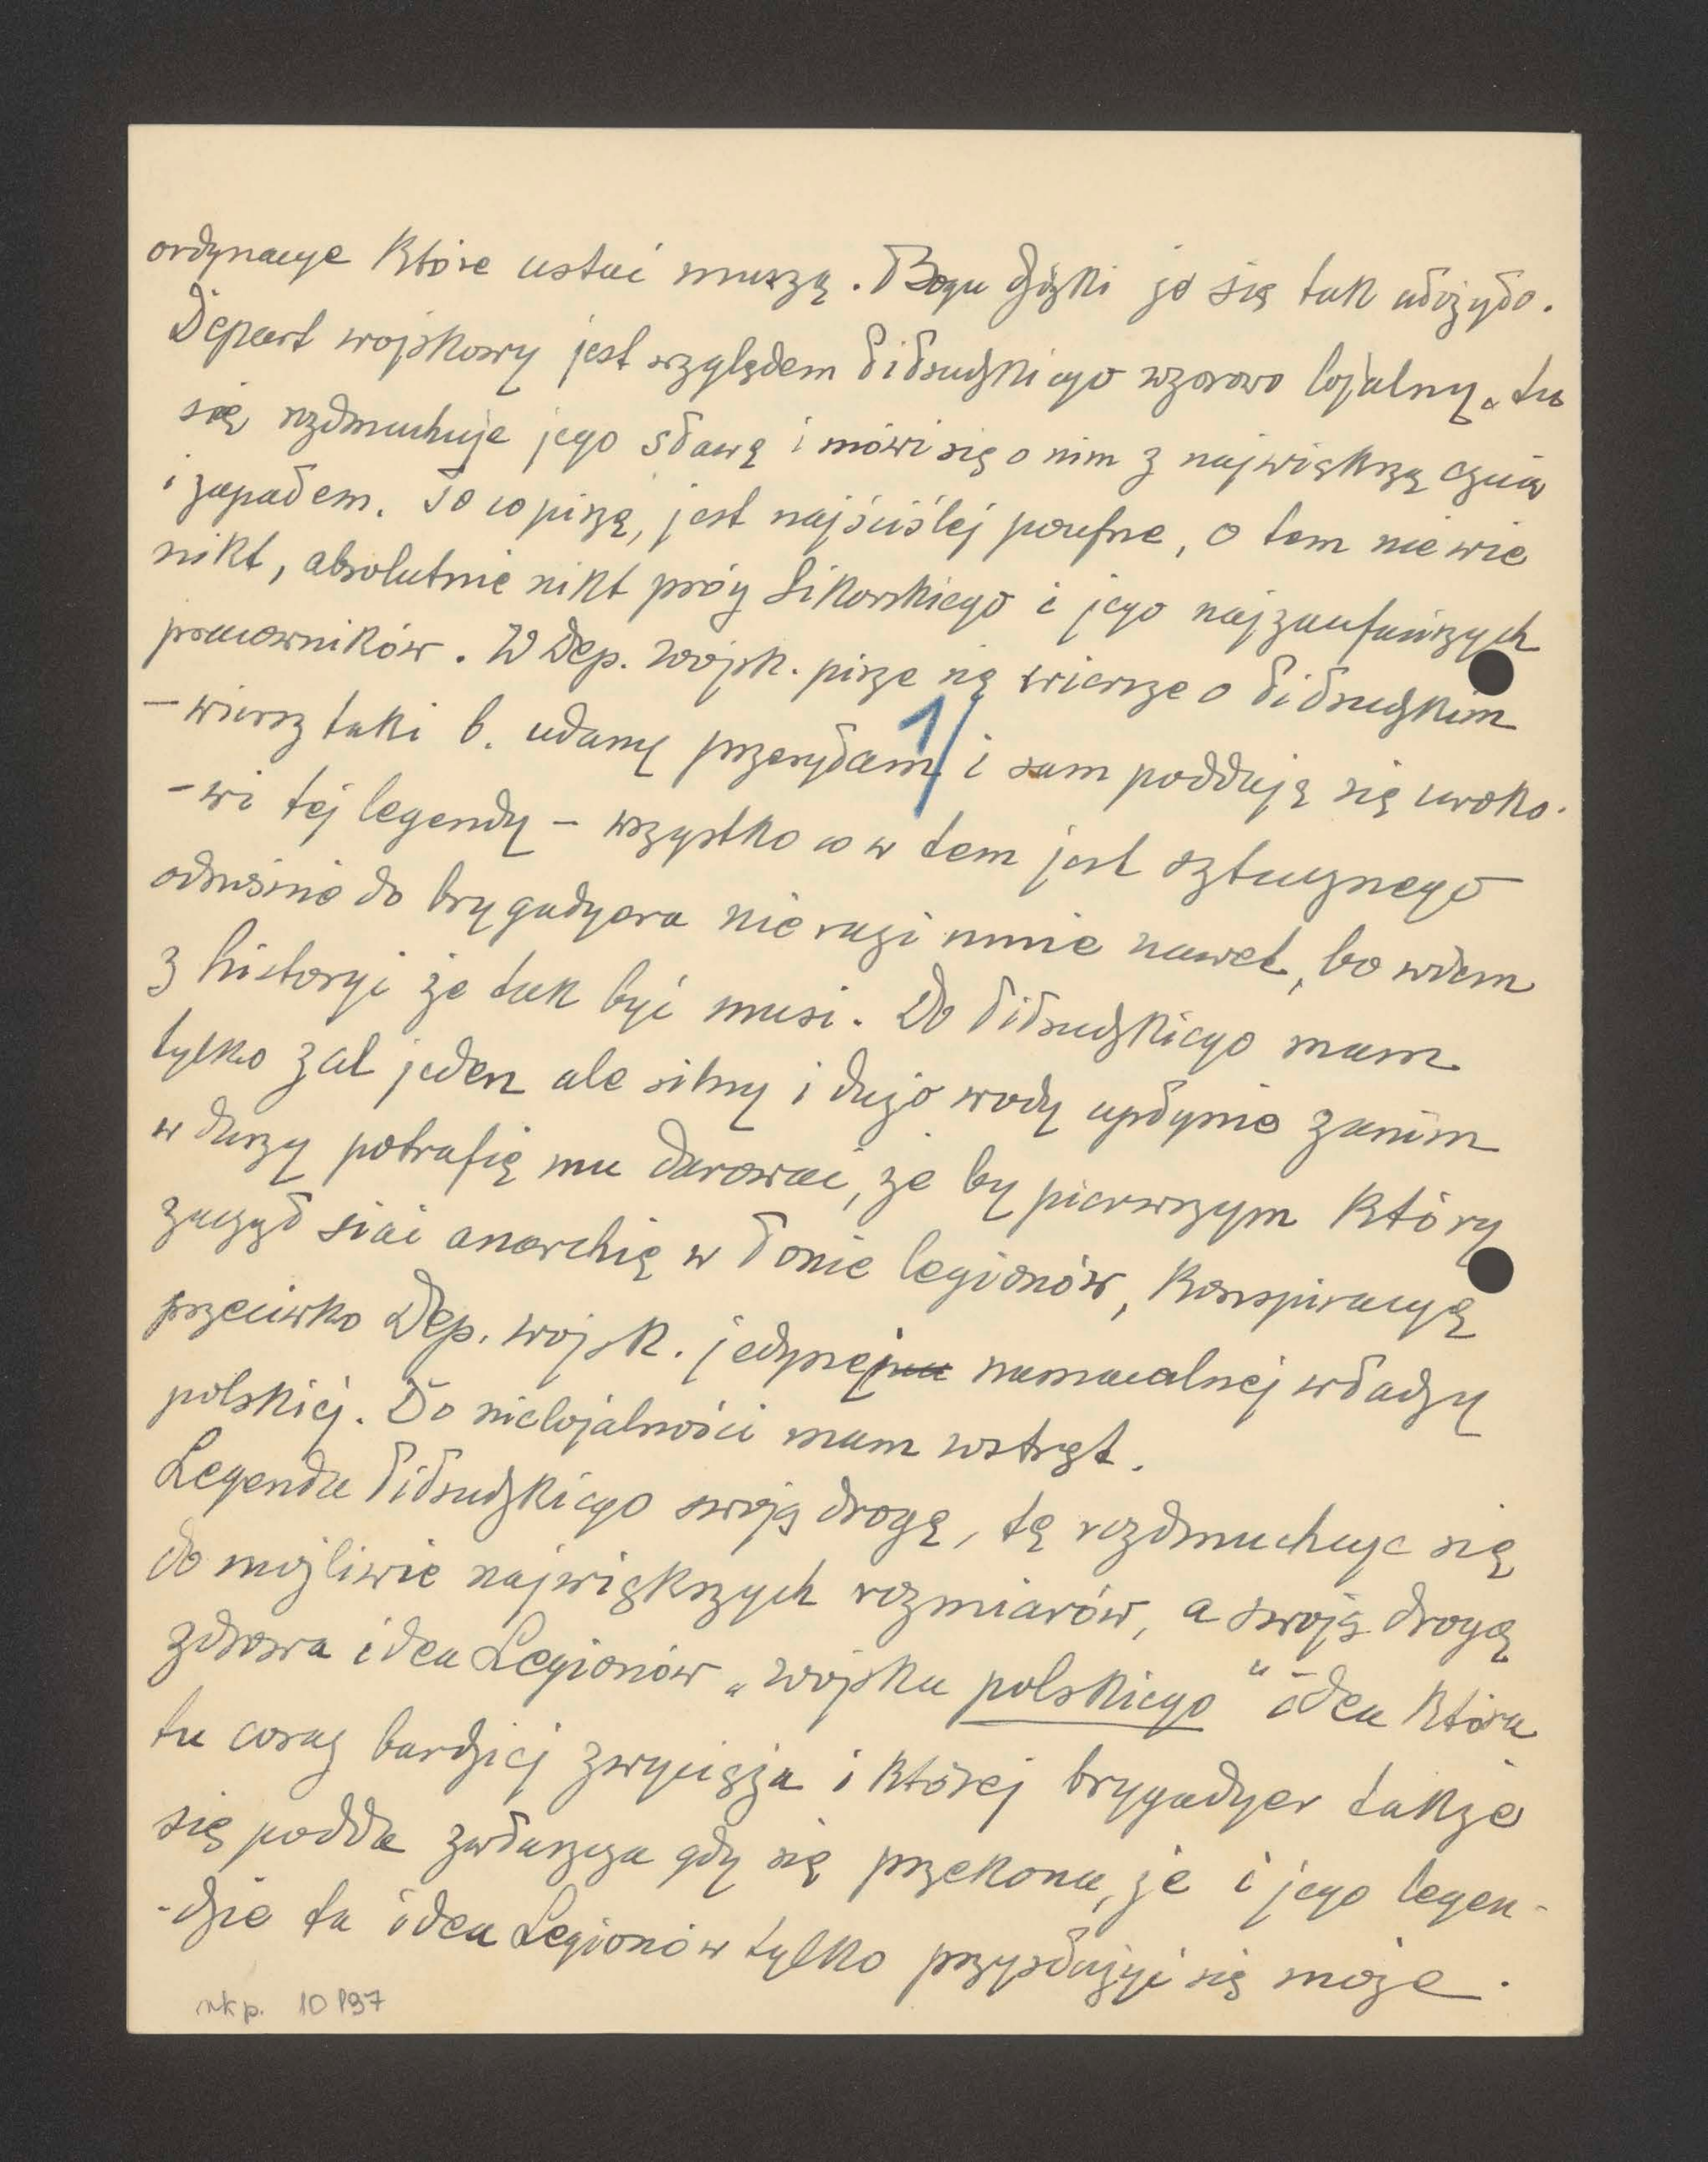 ordynacye które ustać muszą. Bogu dzięki że się tak ułożyło.
Depart wojskowy jest względem Piłsudzkiego wzorowo lojalny. tu
się rozdmuchuje jego sławę i mówi się o nim z największą czcią
i zapałem. To co piszę, jest najściślej poufne, o tem nie wie
nikt, absolutnie nikt prócz Sikorskiego i jego najzaufańszych
pracowników. W Dep. wojsk. pisze się wiersze o Piłsudzkim
– wiersz taki b. udany przesyłam 1/ i sam poddaję się uroko-
-wi tej legendy – wszystko co w tem jest sztucznego
odnośnie do brygadyera nie razi mnie nawet, bo wiem
z historyi że tak być musi. Do Piłsudzkiego mam
tylko żal jeden ale silny i dużo wody upłynie zanim
w duszy potrafię mu darować, że by pierwszym który
zaczął siać anarchię w łonie legionów, konspiracyę
przeciwko Dep. wojsk. jedynej namacalnej władzy
polskiej. Do nielojalności mam wstręt.
Legenda Piłsudzkiego swoją drogą, tę rozdmuchuje się
do możliwie największych rozmiarów, a swoją drogą
zdrowa idea Legionów „wojska polskiego" idea która
tu coraz bardziej zwycięża i której brygadyer także
się podda zwłaszcza gdy się przekona, że i jego legen-
-dzie ta idea Legionów tylko przysłużyć się może.
rkp. 10197